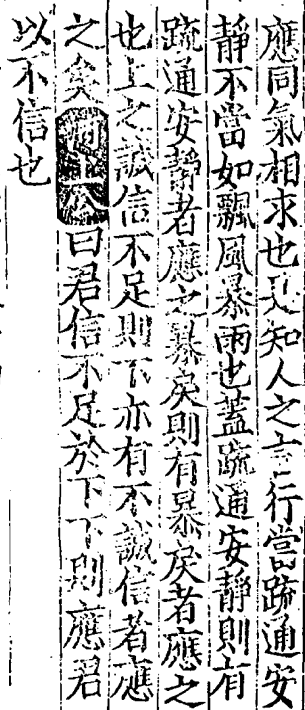 應同氣相求也是知人之言行當䟽通安
靜不當如飄風暴雨也蓋䟽通安靜則有
䟽通安靜者應之暴戾則有暴戾者應之
也上之誠信不足則下亦有不誠信者應
之矣河上公曰君信不足於下下則應君
以不信也